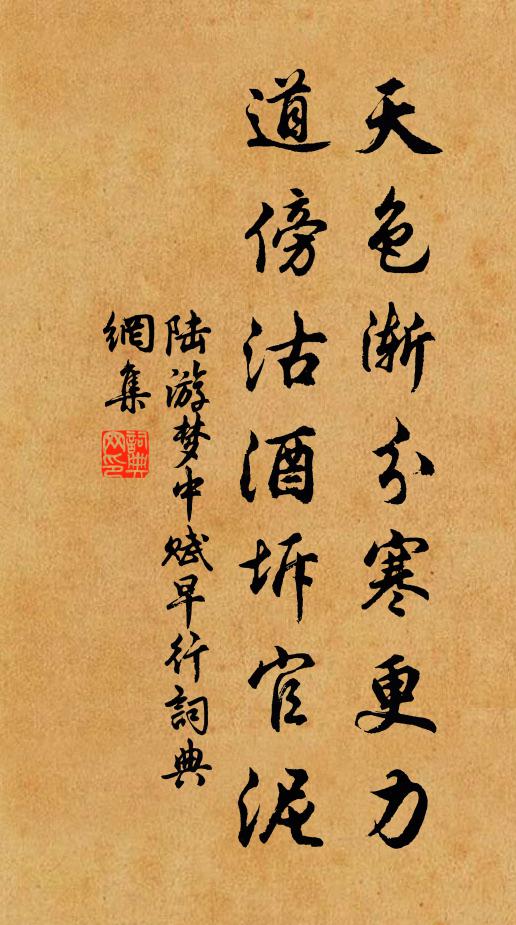 天色渐分寒更力
道傍沽酒坼官泥
陆游梦中赋早行詞典
網集
詞典網印